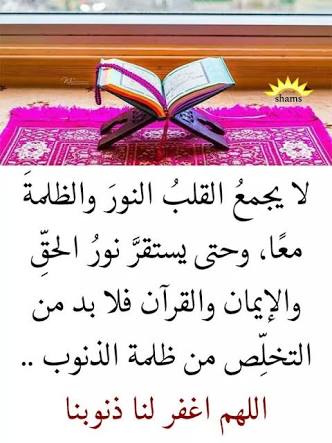 shams
لا يجمعُ القلبُ النورَ والظلمةَ
معًا، وحتى يستقرَّ نورُ الحقِّ
والإيمان والقرآن فلا بد من
التخلِّص من ظلمة الذنوب ..
اللهم اغفر لنا ذنوبنا